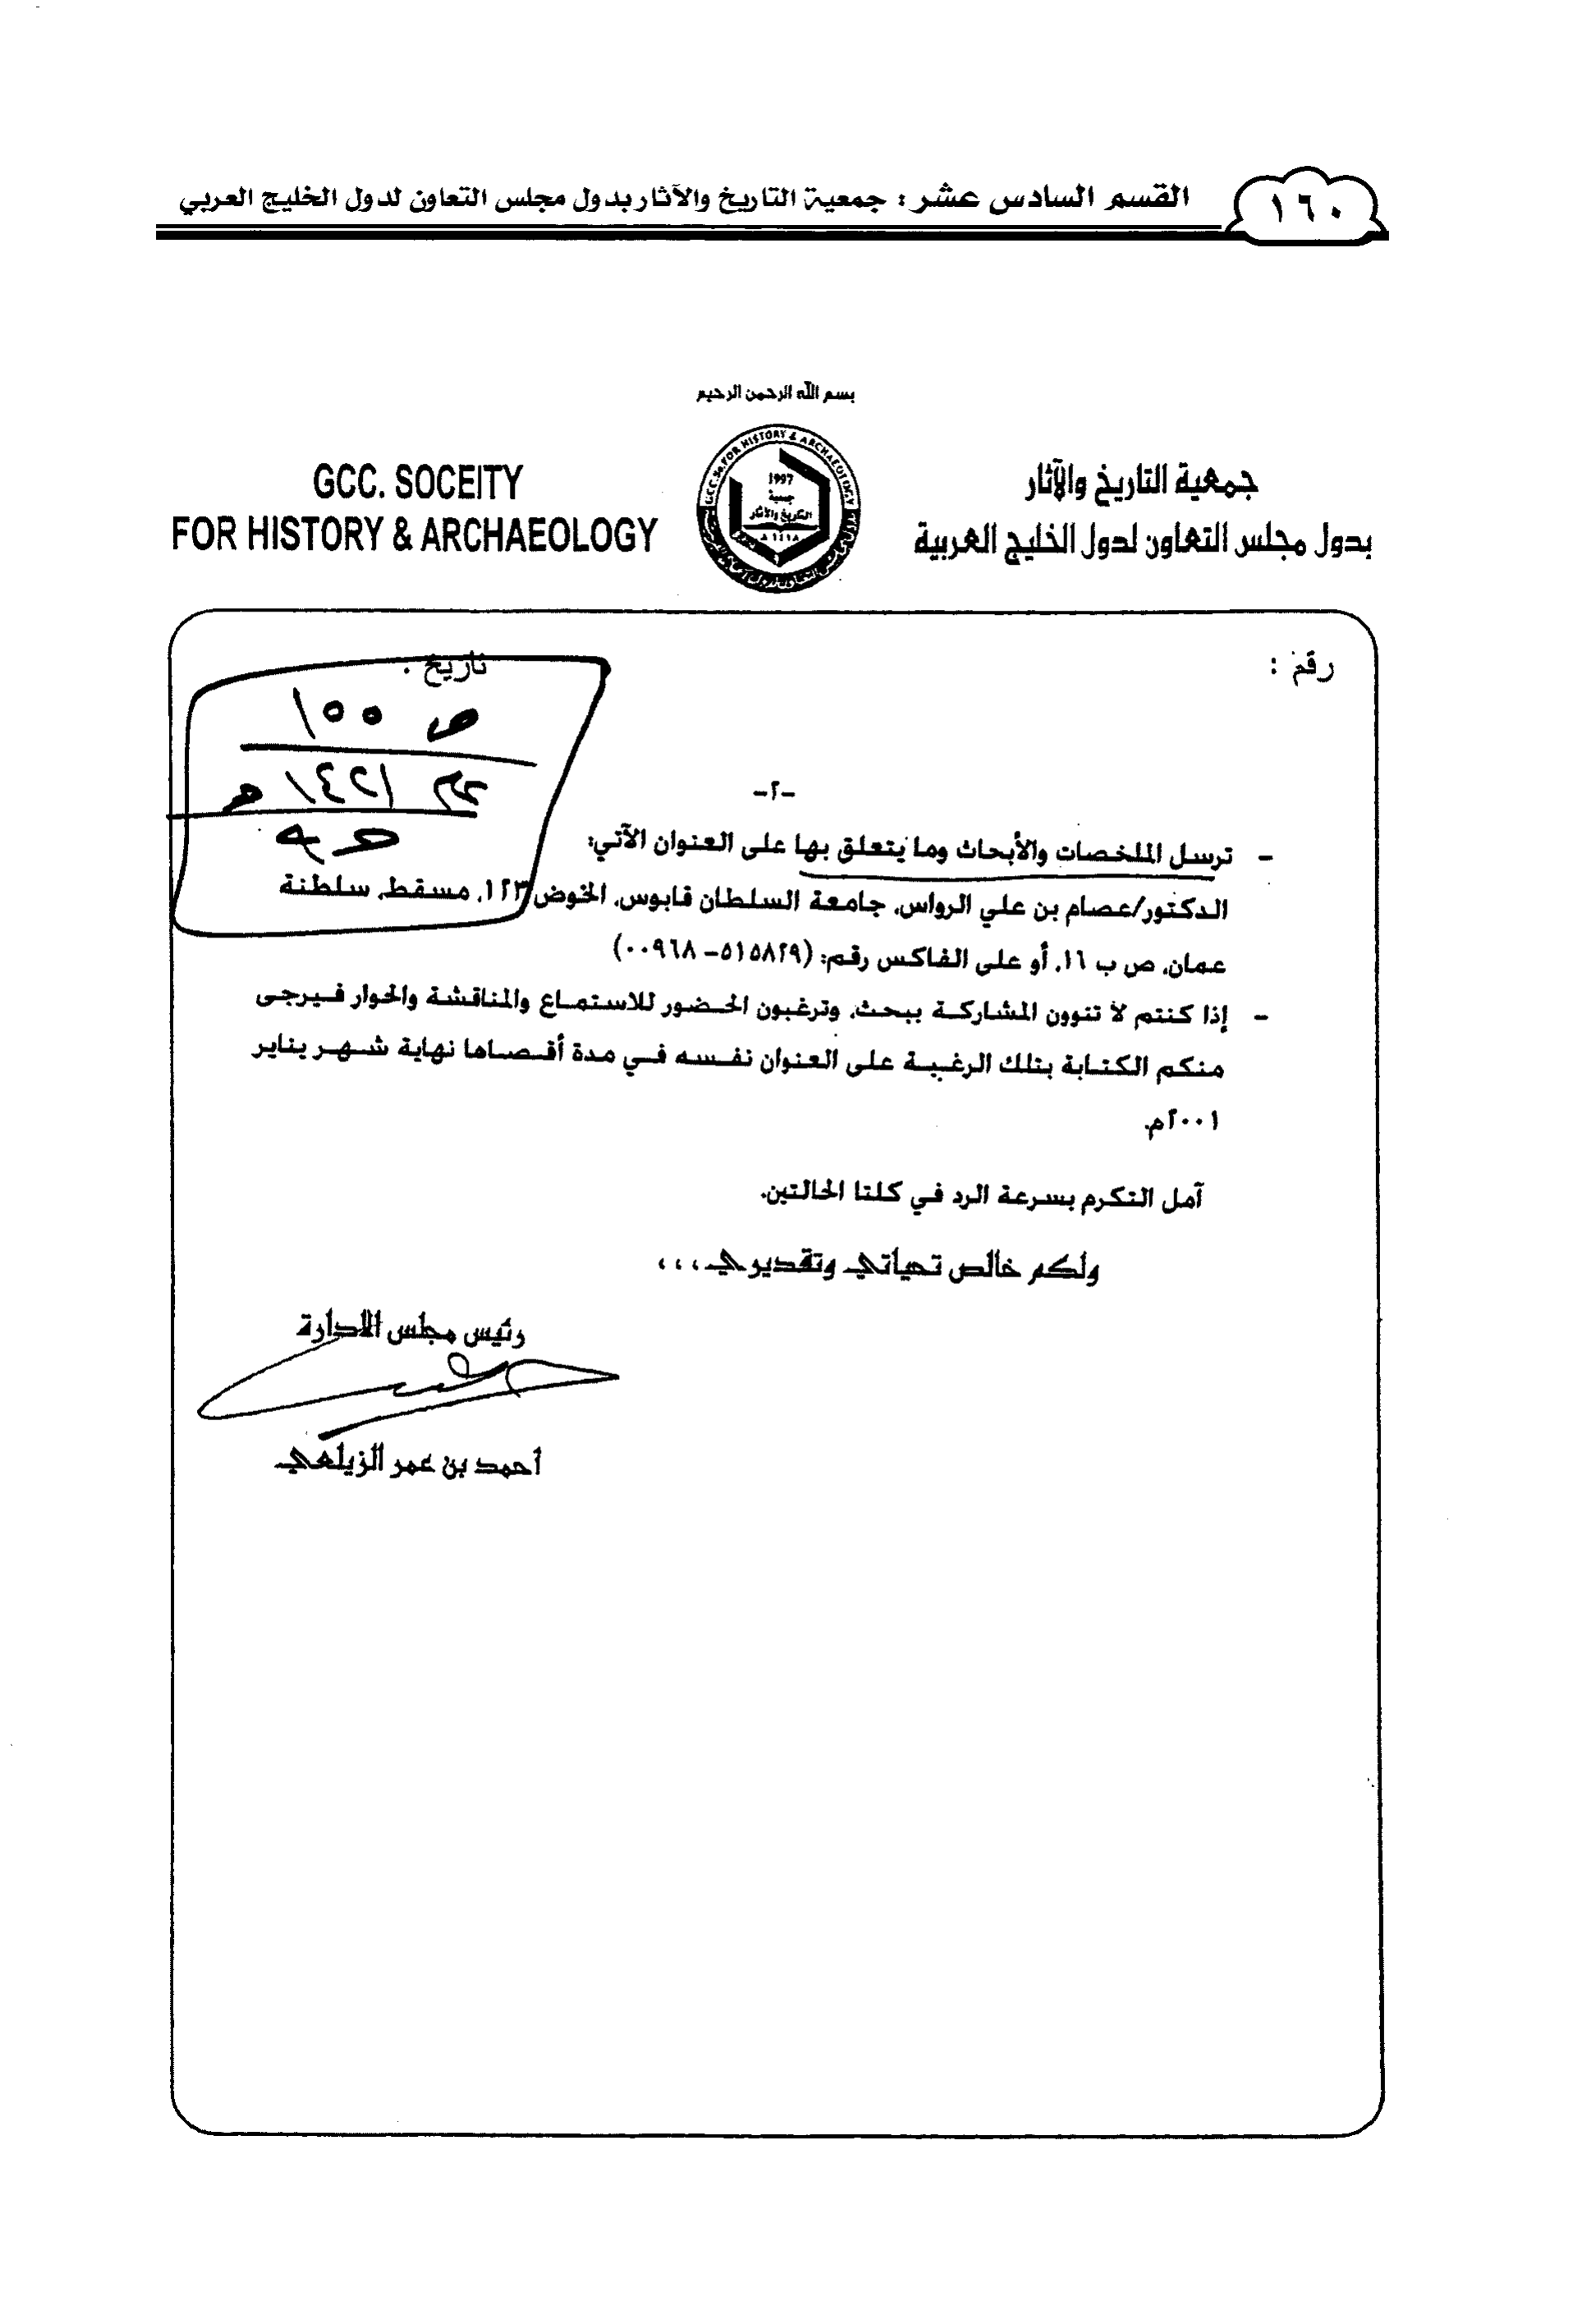 ١٦٠
القسم السادس عشر: جمعية التاريخ والآثار بدول مجلس التعاون لدول الخليج العربي
بسم الله الرحمن الرحيم
جمعية التاريخ والآثار
بدول مجلس التعاون لدول الخليج العربية
GCC. SOCEITY
FOR HISTORY & ARCHAEOLOGY
GCC. So. FOR HISTORY & ARCHAEOLOGY
1997
جمعية
التاريخ والآثار
١٤١٨ هـ
رقم :
تاريخ :
ص ١٥٥
١٤٢١ هـ
-٢-
- ترسل الملخصات والأبحاث وما يتعلق بها على العنوان الآتي:
الدكتور/عصام بن علي الرواس، جامعة السلطان قابوس، الخوض ١٢٣، مسقط، سلطنة
عمان، ص ب ١٦، أو على الفاكس رقم: (٥١٥٨٢٩- ٠٠٩٦٨)
- إذا كنتم لا تنوون المشاركة ببحث، وترغبون الحضور للاستماع والمناقشة والحوار فيرجى
منكم الكتابة بتلك الرغبة على العنوان نفسه في مدة أقصاها نهاية شهر يناير
٢٠٠١م.
آمل التكرم بسرعة الرد في كلتا الحالتين.
ولكم خالص تحياتي وتقديري،،،
رئيس مجلس الادارة
أحمد بن عمر الزيلعي